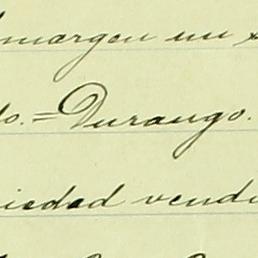 margen un
do.=Durango.
iedad vendi